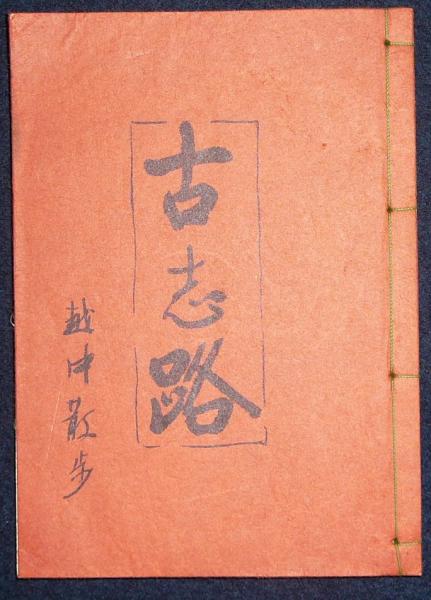 古志路
越中散歩